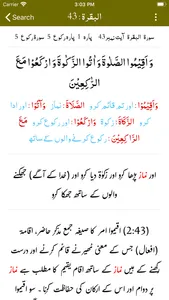 3:02 PM
Search
البقرة : 43
سورة البقرة آیت نمبر43 پارہ 1 پارہ رکوع 5 سورۃ رکوع 5
وَاَقِيْمُوا الصَّلٰوةَ وَاٰتُوا الزَّكٰوةَ وَارْكَعُوْا مَعَ
الرّٰكِعِيْنَ
وَاَقِيْمُوا: اور تم قائم کرو الصَّلٰوةَ: نماز وَاٰتُوا: اور ادا
کرو الزَّكٰوةَ: زکوٰۃ وَارْكَعُوْا: اور رکوع کرو مَعَ
الرّٰكِعِيْنَ: رکوع کرنے والے
اور نماز پڑھا کرو اور زکوٰۃ دیا کرو اور (خدا کے آگے) جھکنے
والوں کے ساتھ جھکا کرو
(2:43) اقیموا امر کا صیغہ جمع مذکر حاضر، اقامۃ
(افعال) جس کے معنی ٹھیرنے قائم کرنے اور درست
رکھنے کے ہیں نماز کے ساتھ اقام یقیم کا مطلب ہے نماز
پر دوام اور اس کے ارکان کی حفاظت کرنا۔ و